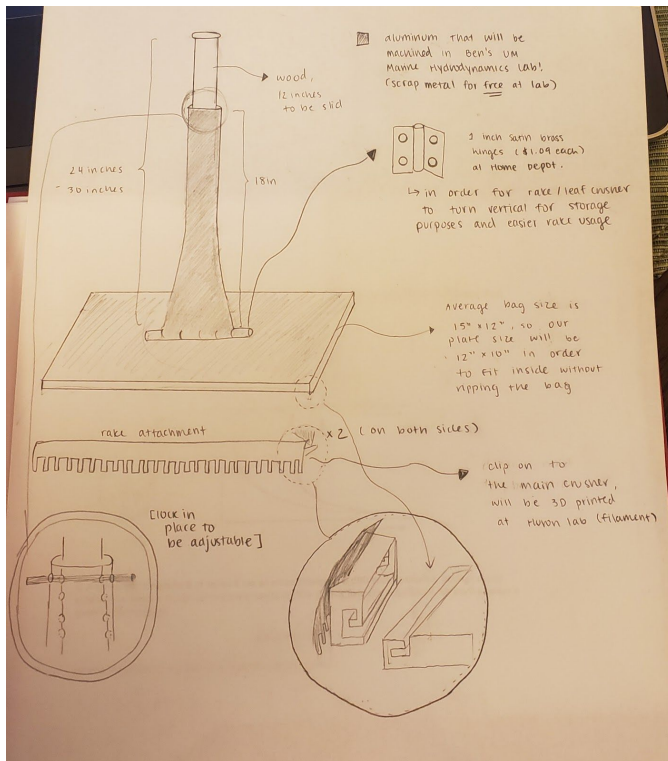 aluminum that will be
machined in Ben's UM
Marine Hydrodynamics Lab!
(scrap metal for free at lab)
wood,
12 inches
to be slid
1 inch satin brass
hinges ($1.09 each)
at Home Depot.
↳ in order for rake/leaf crusher
to turn vertical for storage
purposes and easier rake usage
24 inches
- 30 inches
18in
Average bag size is
15" x 12", so our
plate size will be
12" x 10" in order
to fit inside without
ripping the bag
rake attachment
x2 (on both sides)
clip on to
the main crusher,
will be 3D printed
at Huron lab (filament)
[lock in
place to
be adjustable]